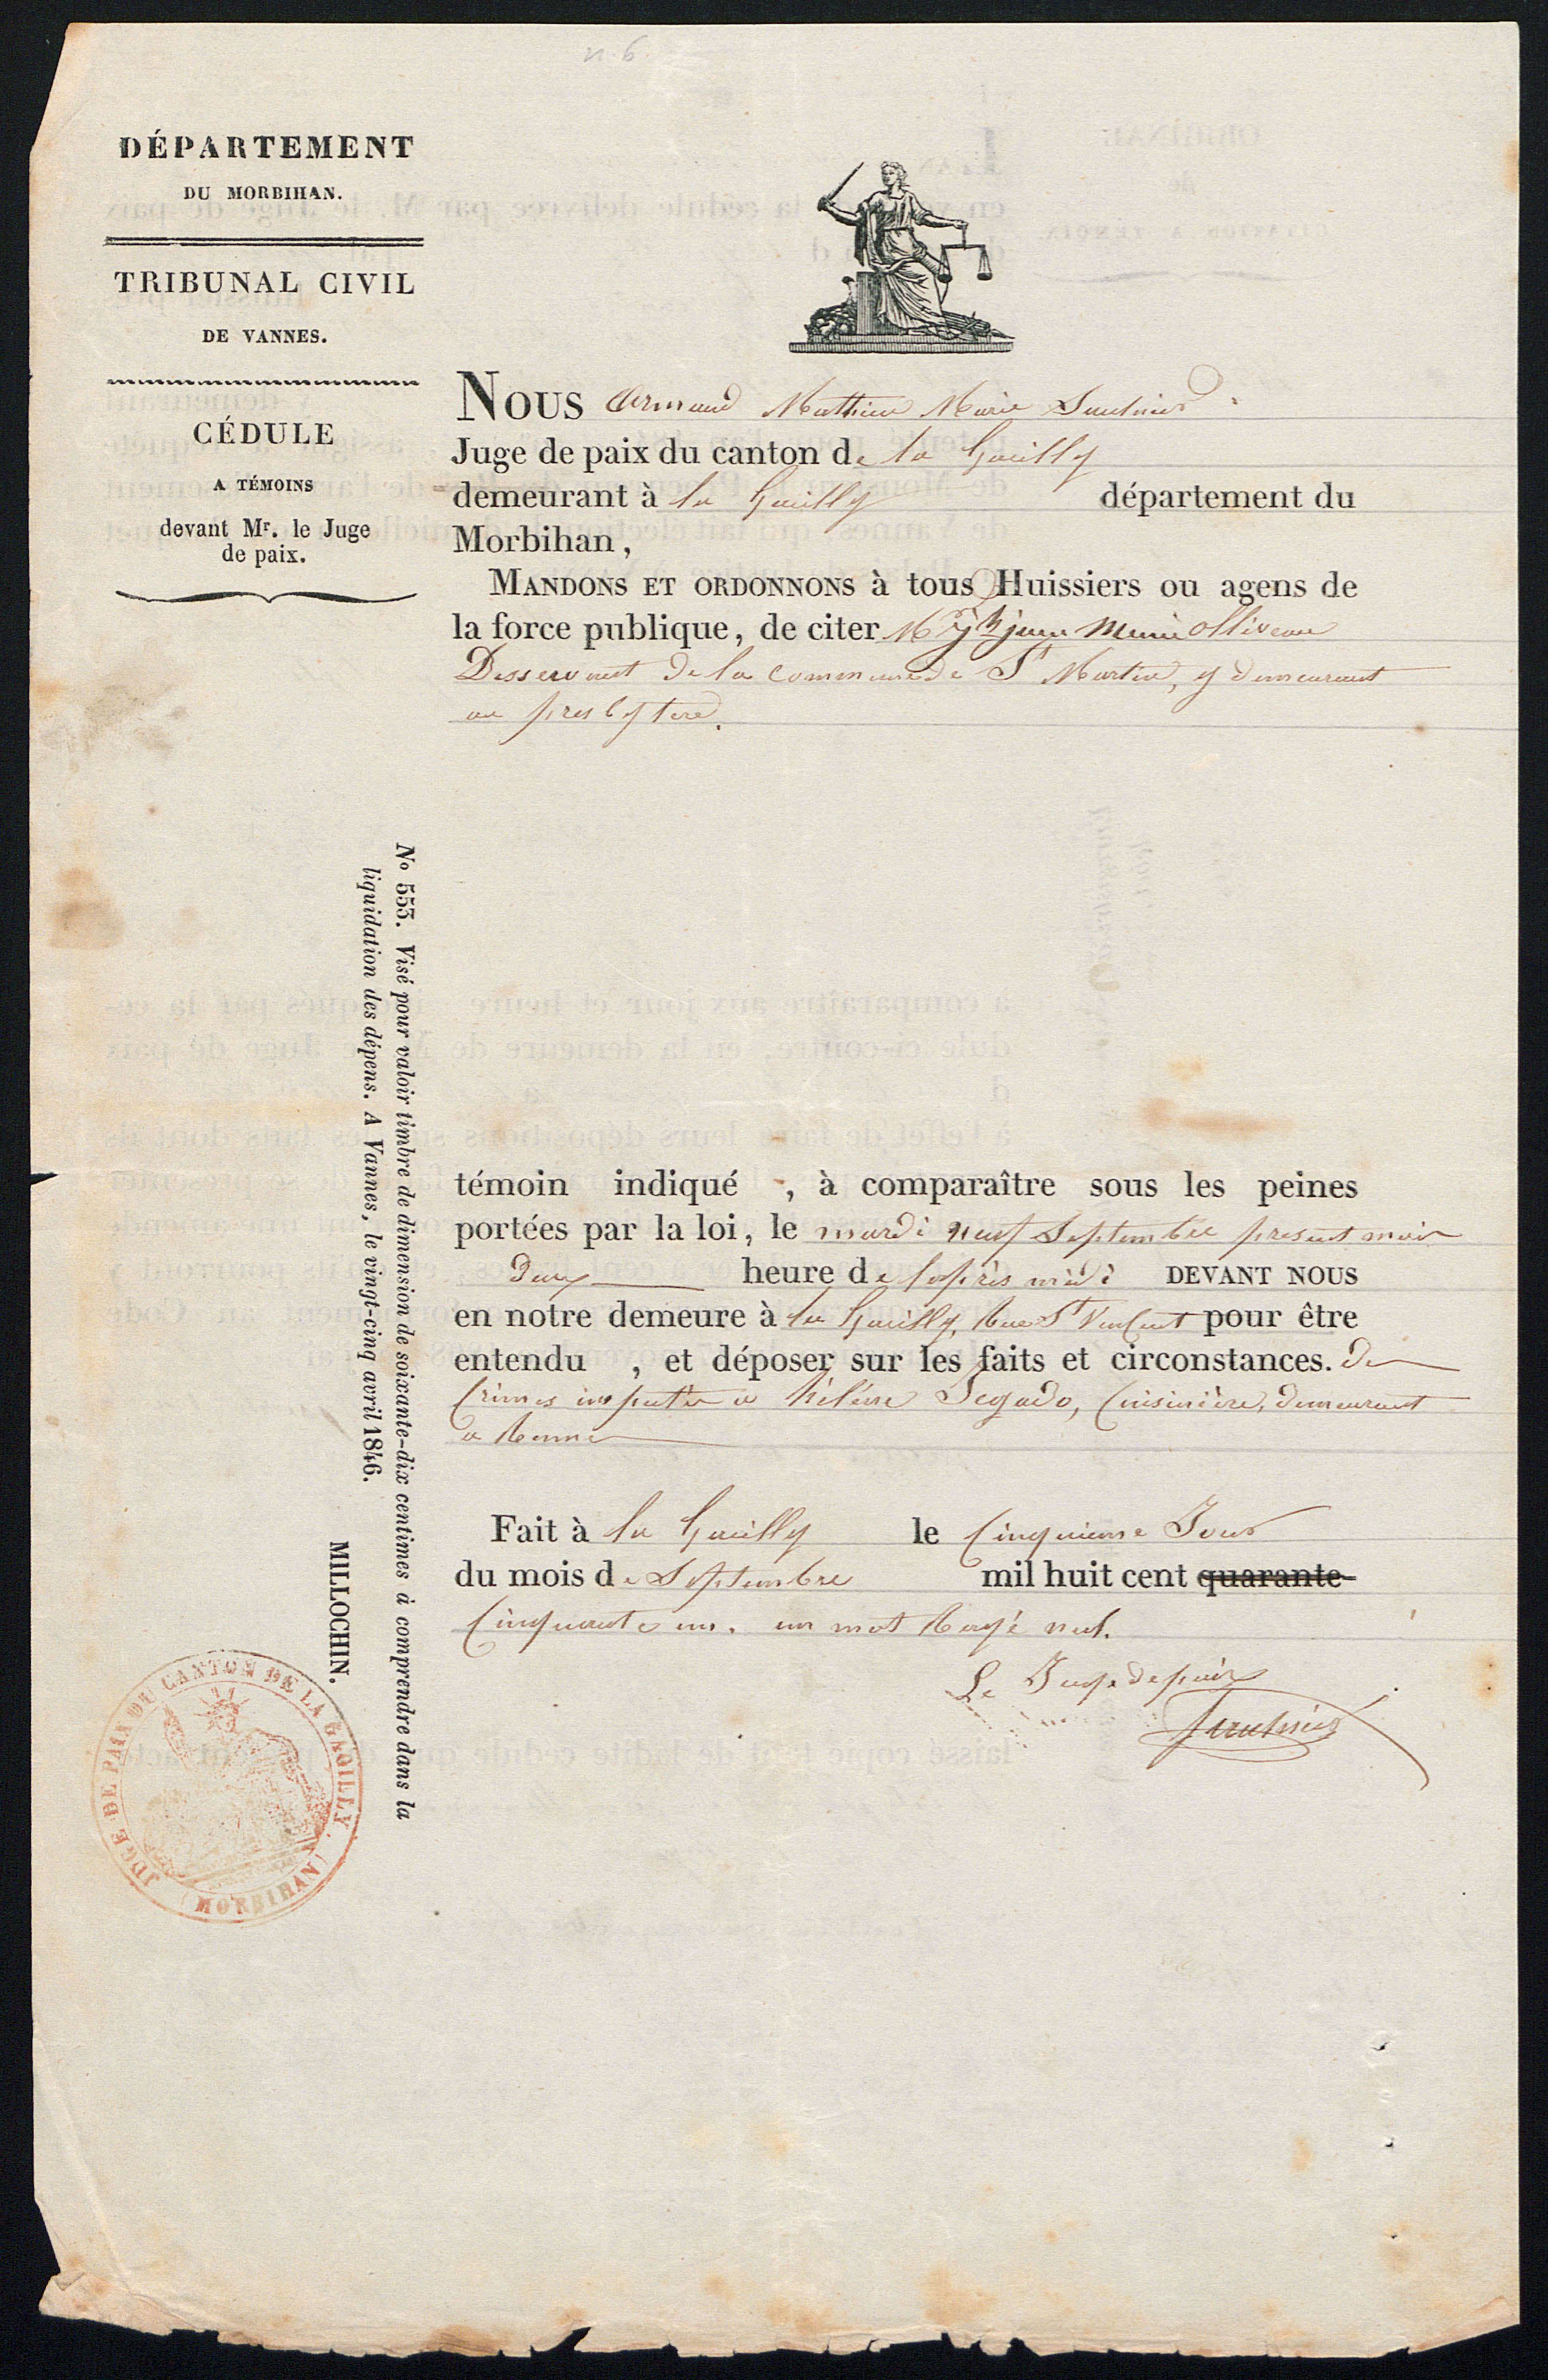 n. 6.
DÉPARTEMENT
DU MORBIHAN.
TRIBUNAL CIVIL
DE VANNES.
CÉDULE
A TÉMOINS
devant Mr. le Juge
de paix.
NOUS Armand Mathieu Marie
Juge de paix du canton de la Gacilly
demeurant à la Gacilly département du
Morbihan,
MANDONS ET ORDONNONS à tous Huissiers ou agens de
la force publique, de citer Mr jean Marie Olliveau
Desservant de la commune de St Martin, y demeurant
au presbytere.
témoin indiqué , à comparaître sous les peines
portées par la loi, le mardi neuf Septembre present mois
Deux heure de laprès midi DEVANT NOUS
en notre demeure à la Gacilly, Rue St Vincent pour être
entendu , et déposer sur les faits et circonstances. De
Crimes imputés a hélène Jegado, Cuisinière, demeurant
a Rennes
Fait à la Gacilly le Cinquieme Jour
du mois de Septembre mil huit cent quarante
Cinquante un. un mot Rayé nul.
Le Juge de paix
No 553. Visé pour valoir timbre de dimension de soixante-dix centimes à comprendre dans la
liquidation des dépens. A Vannes, le vingt-cinq avril 1846.
MILLOCHIN.
JUGE DE PAIX DU CANTON DE LA GACILLY.
(MORBIHAN)